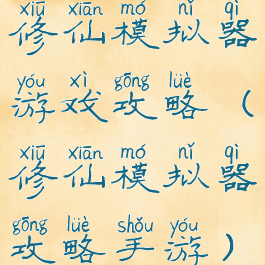 xiū xiān mó nǐ qì
修仙模拟器
yóu xì gōng lüè
游戏攻略（
xiū xiān mó nǐ qì
修仙模拟器
gōng lüè shǒu yóu
攻略手游）